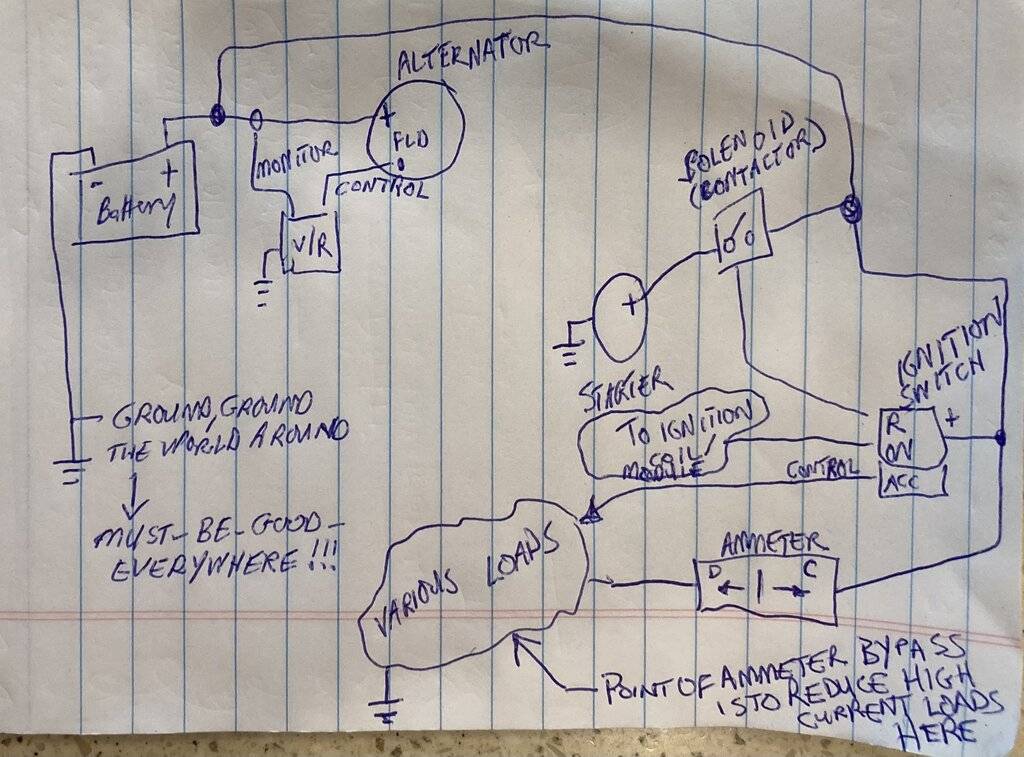 ALTERNATOR
+
FLD
MONITOR
CONTROL
- +
Battery
V/R
SOLENOID
(CONTACTOR)
+
STARTER
IGNITION
SWITCH
R
ON
+
ACC
TO IGNITION
COIL/
MODULE
CONTROL
GROUND, GROUND
THE WORLD AROUND
MUST-BE-GOOD-
EVERYWHERE!!!
AMMETER
D C
VARIOUS LOADS
POINT OF AMMETER BYPASS
IS TO REDUCE HIGH
CURRENT LOADS
HERE